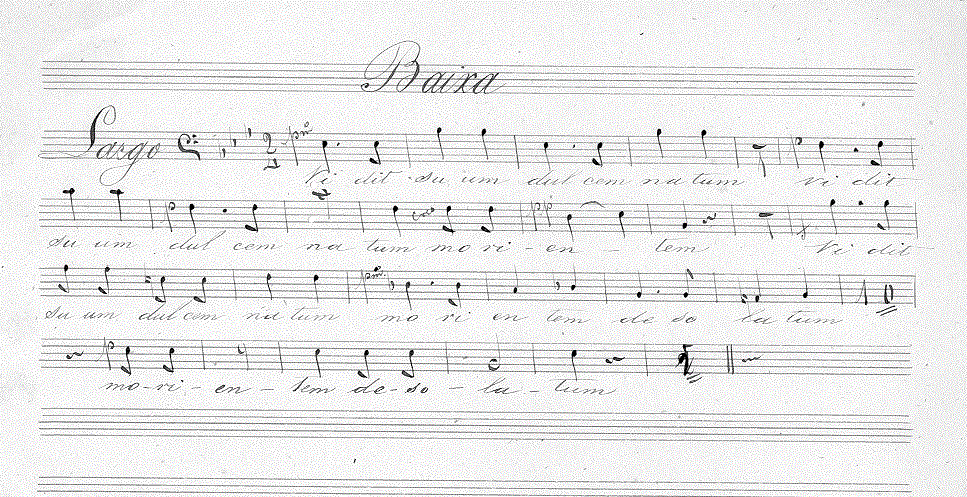 Baixa
Largo
Vi dit su um dul cem na tum vi dit
su um dul cem na tum mo ri - en - tem Vi dit
su um dul cem na tum mo ri en tem de so la tum
mo-ri-en-tem de-so-la-tum